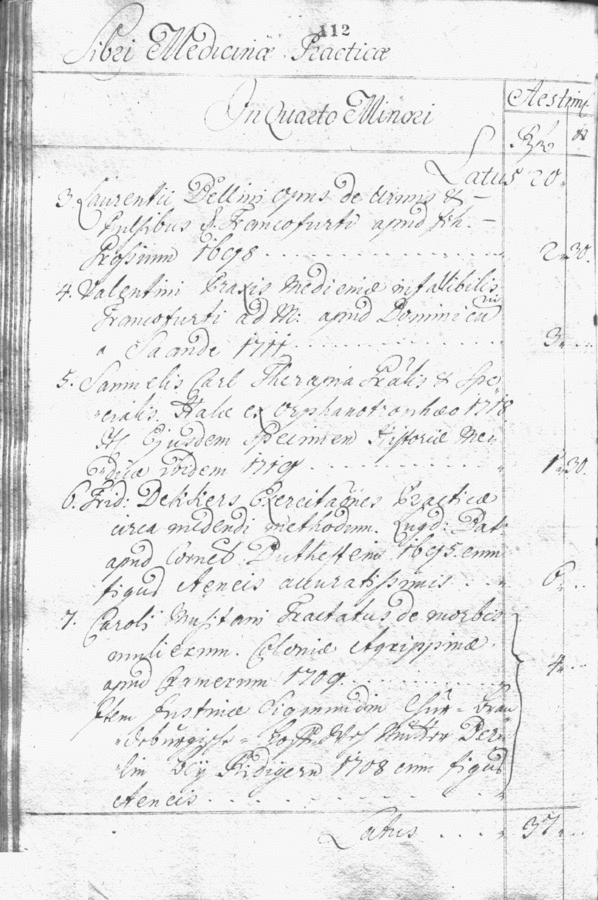 112
Libri Medicinæ Practicæ
Aestim
In Quarto Minori
Latus 20.
3. Laurentii Bellini opus de Urinis &
Pulsibus Francofurti apud Joh.
Grossium 1698 2. 30.
4. Valentini Praxis Medicinæ infallibilis
Francofurti ad M: apud Dominicum
a Sande 1711 3.
5. Samuelis Carl Therapia Gralis & Spe-
cialis. Halæ ex Orphanotrophæo 1718
It. Ejusdem Specimen Historiæ Me-
dicæ ibidem 1719 1. 30.
6. Frid: Dekkers Exercitaõnes Practicæ
circa medendi methodum. Lugd: Bat
apud Cornel. 1695. cum
figuris Aeneis accuratissimis 6.
7. Caroli Musitani Tractatus de morbis
mulierum. Coloniæ Agrippinæ
apud Cramerum 1709 4.
Item Justinæ Sigmundin Chur-Bran
deburgische-Hoff-Wehmutter Ber-
lin bey Rüdigern 1708 cum figuris
Aeneis
Latus 37.